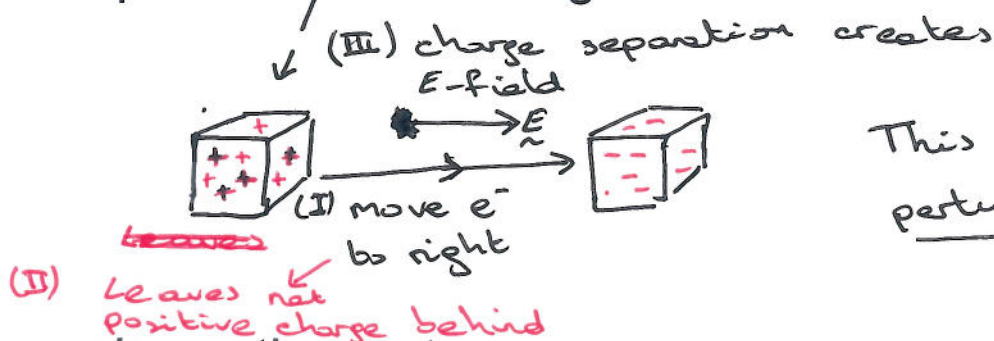 (III) charge separation creates
E-field
E
This
(I) move e⁻
to right
(II) Leaves net
positive charge behind